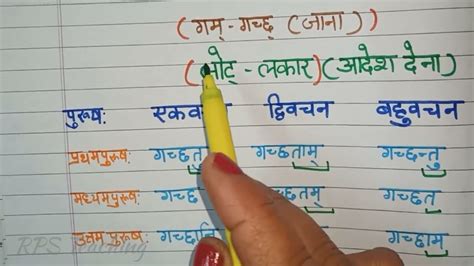 (गम् - गच्छ् (जाना)
(लोट् - लकार) (आदेश देना)
पुरूष: एकवचन द्विवचन बहुवचन
प्रथमपुरूष: गच्छतु गच्छताम् गच्छन्तु
मध्यमपुरूष: गच्छतम् गच्छत
उत्तम पुरूष: गच्छानि गच्छाम
RPS Learning